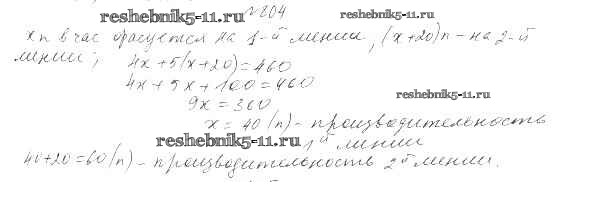 reshebnik5-11.ru №804 reshebnik5-11.ru
x п в час фасуется на 1-й линии, (x+20)п – на 2-й
линии;
4x+5(x+20)=460
4x+5x+100=460
9x=360
reshebnik5-11.ru
x=40(п) – производительность
reshebnik5-11.ru 1й линии
40+20=60(п) – производительность 2й линии.